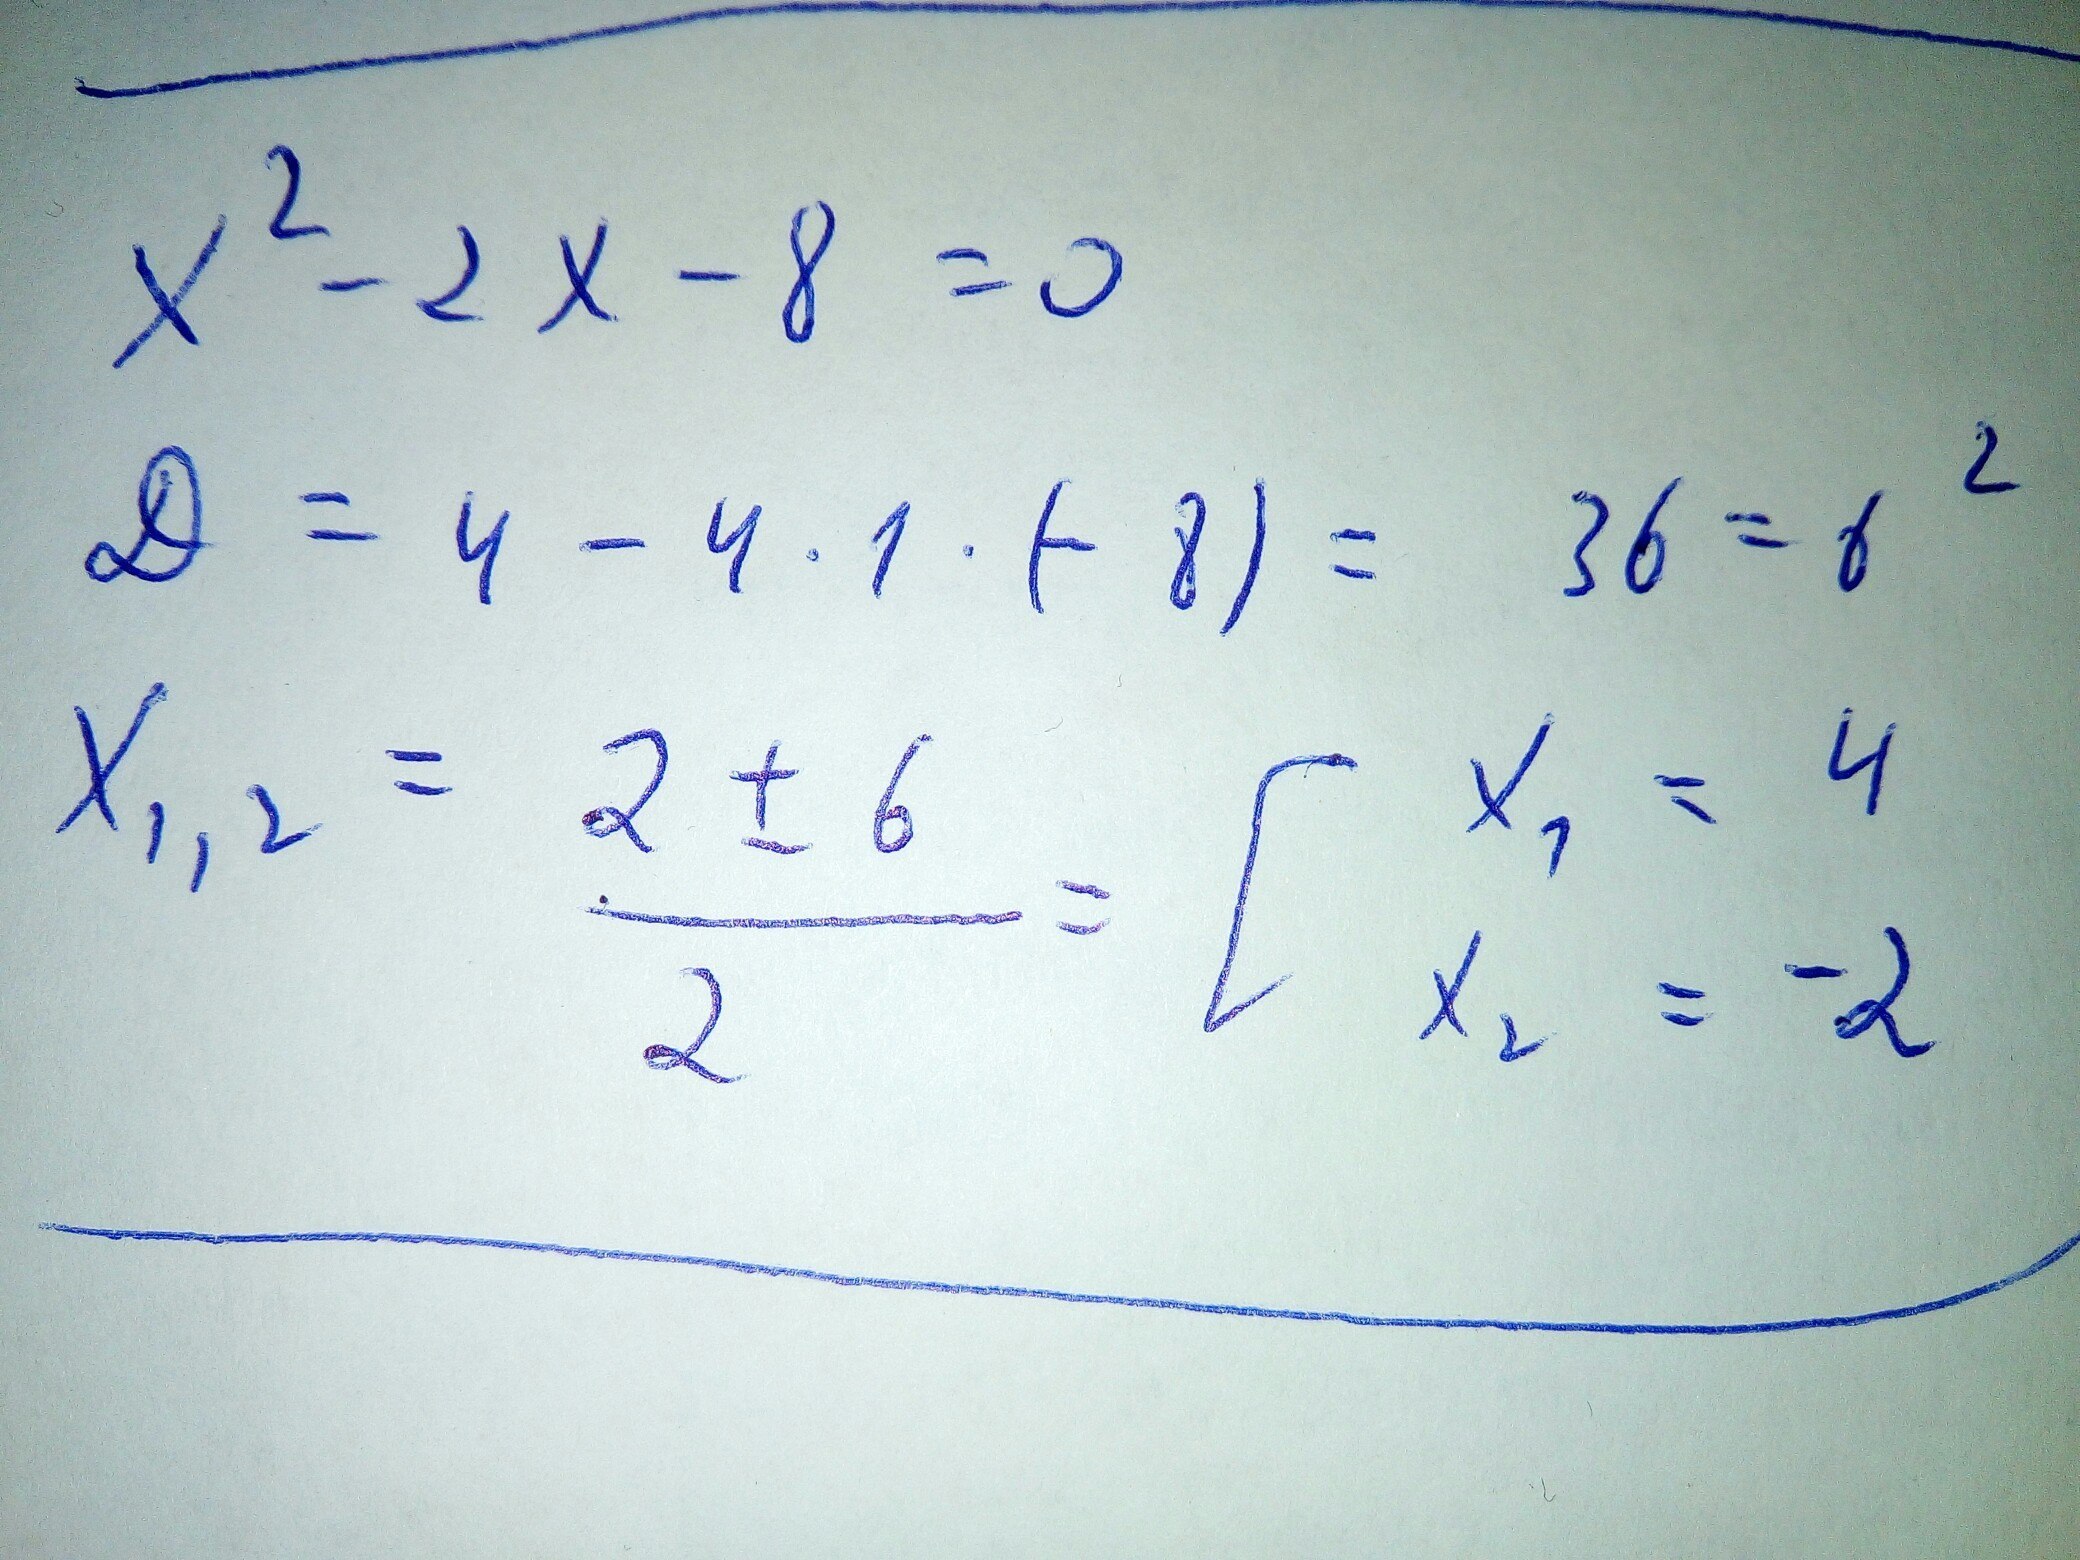 x² - 2x - 8 = 0
D = 4 - 4 · 1 · (-8) = 36 = 6²
x₁,₂ = (2 ± 6)/2 = [ x₁ = 4
x₂ = -2